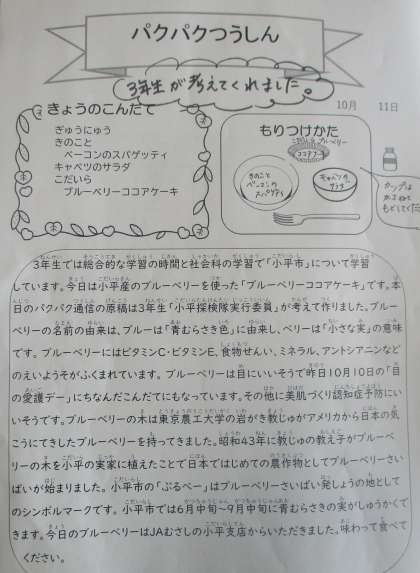 パクパクつうしん
3年生が考えてくれました。
10月 11日
きょうのこんだて
ぎゅうにゅう
きのこと
ベーコンのスパゲッティ
キャベツのサラダ
こだいら
ブルーベリーココアケーキ
もりつけかた
こだいら ブルーベリー
ココアケーキ
きのこと
ベーコンの
スパゲティ
キャベツの
サラダ
カップは
かさねて
もどしてくだ
3年生では総合的な学習の時間と社会科の学習で「小平市」について学習
しています。今日は小平産のブルーベリーを使った「ブルーベリーココアケーキ」です。本
日のパクパク通信の原稿は3年生「小平探検隊実行委員」が考えて作りました。ブルー
ベリーの名前の由来は、ブルーは「青むらさき色」に由来し、ベリーは「小さな実」の意味
です。ブルーベリーにはビタミンC・ビタミンE、食物せんい、ミネラル、アントシアニンなど
のえいようそがふくまれています。ブルーベリーは目にいいそうで昨日10月10日の「目
の愛護デー」にちなんだこんだてにもなっています。その他に美肌づくり認知症予防にい
いそうです。ブルーベリーの木は東京農工大学の岩がき教じゅがアメリカから日本の気
こうにてきしたブルーベリーを持ってきました。昭和43年に教じゅの教え子がブルーベ
リーの木を小平の実家に植えたことで日本ではじめての農作物としてブルーベリーさい
ばいが始まりました。小平市の「ぶるべー」はブルーベリーさいばい発しょうの地として
のシンボルマークです。小平市では6月中旬～9月中旬に青むらさきの実がしゅうかくで
きます。今日のブルーベリーはJAむさしの小平支店からいただきました。味わって食べて
ください。